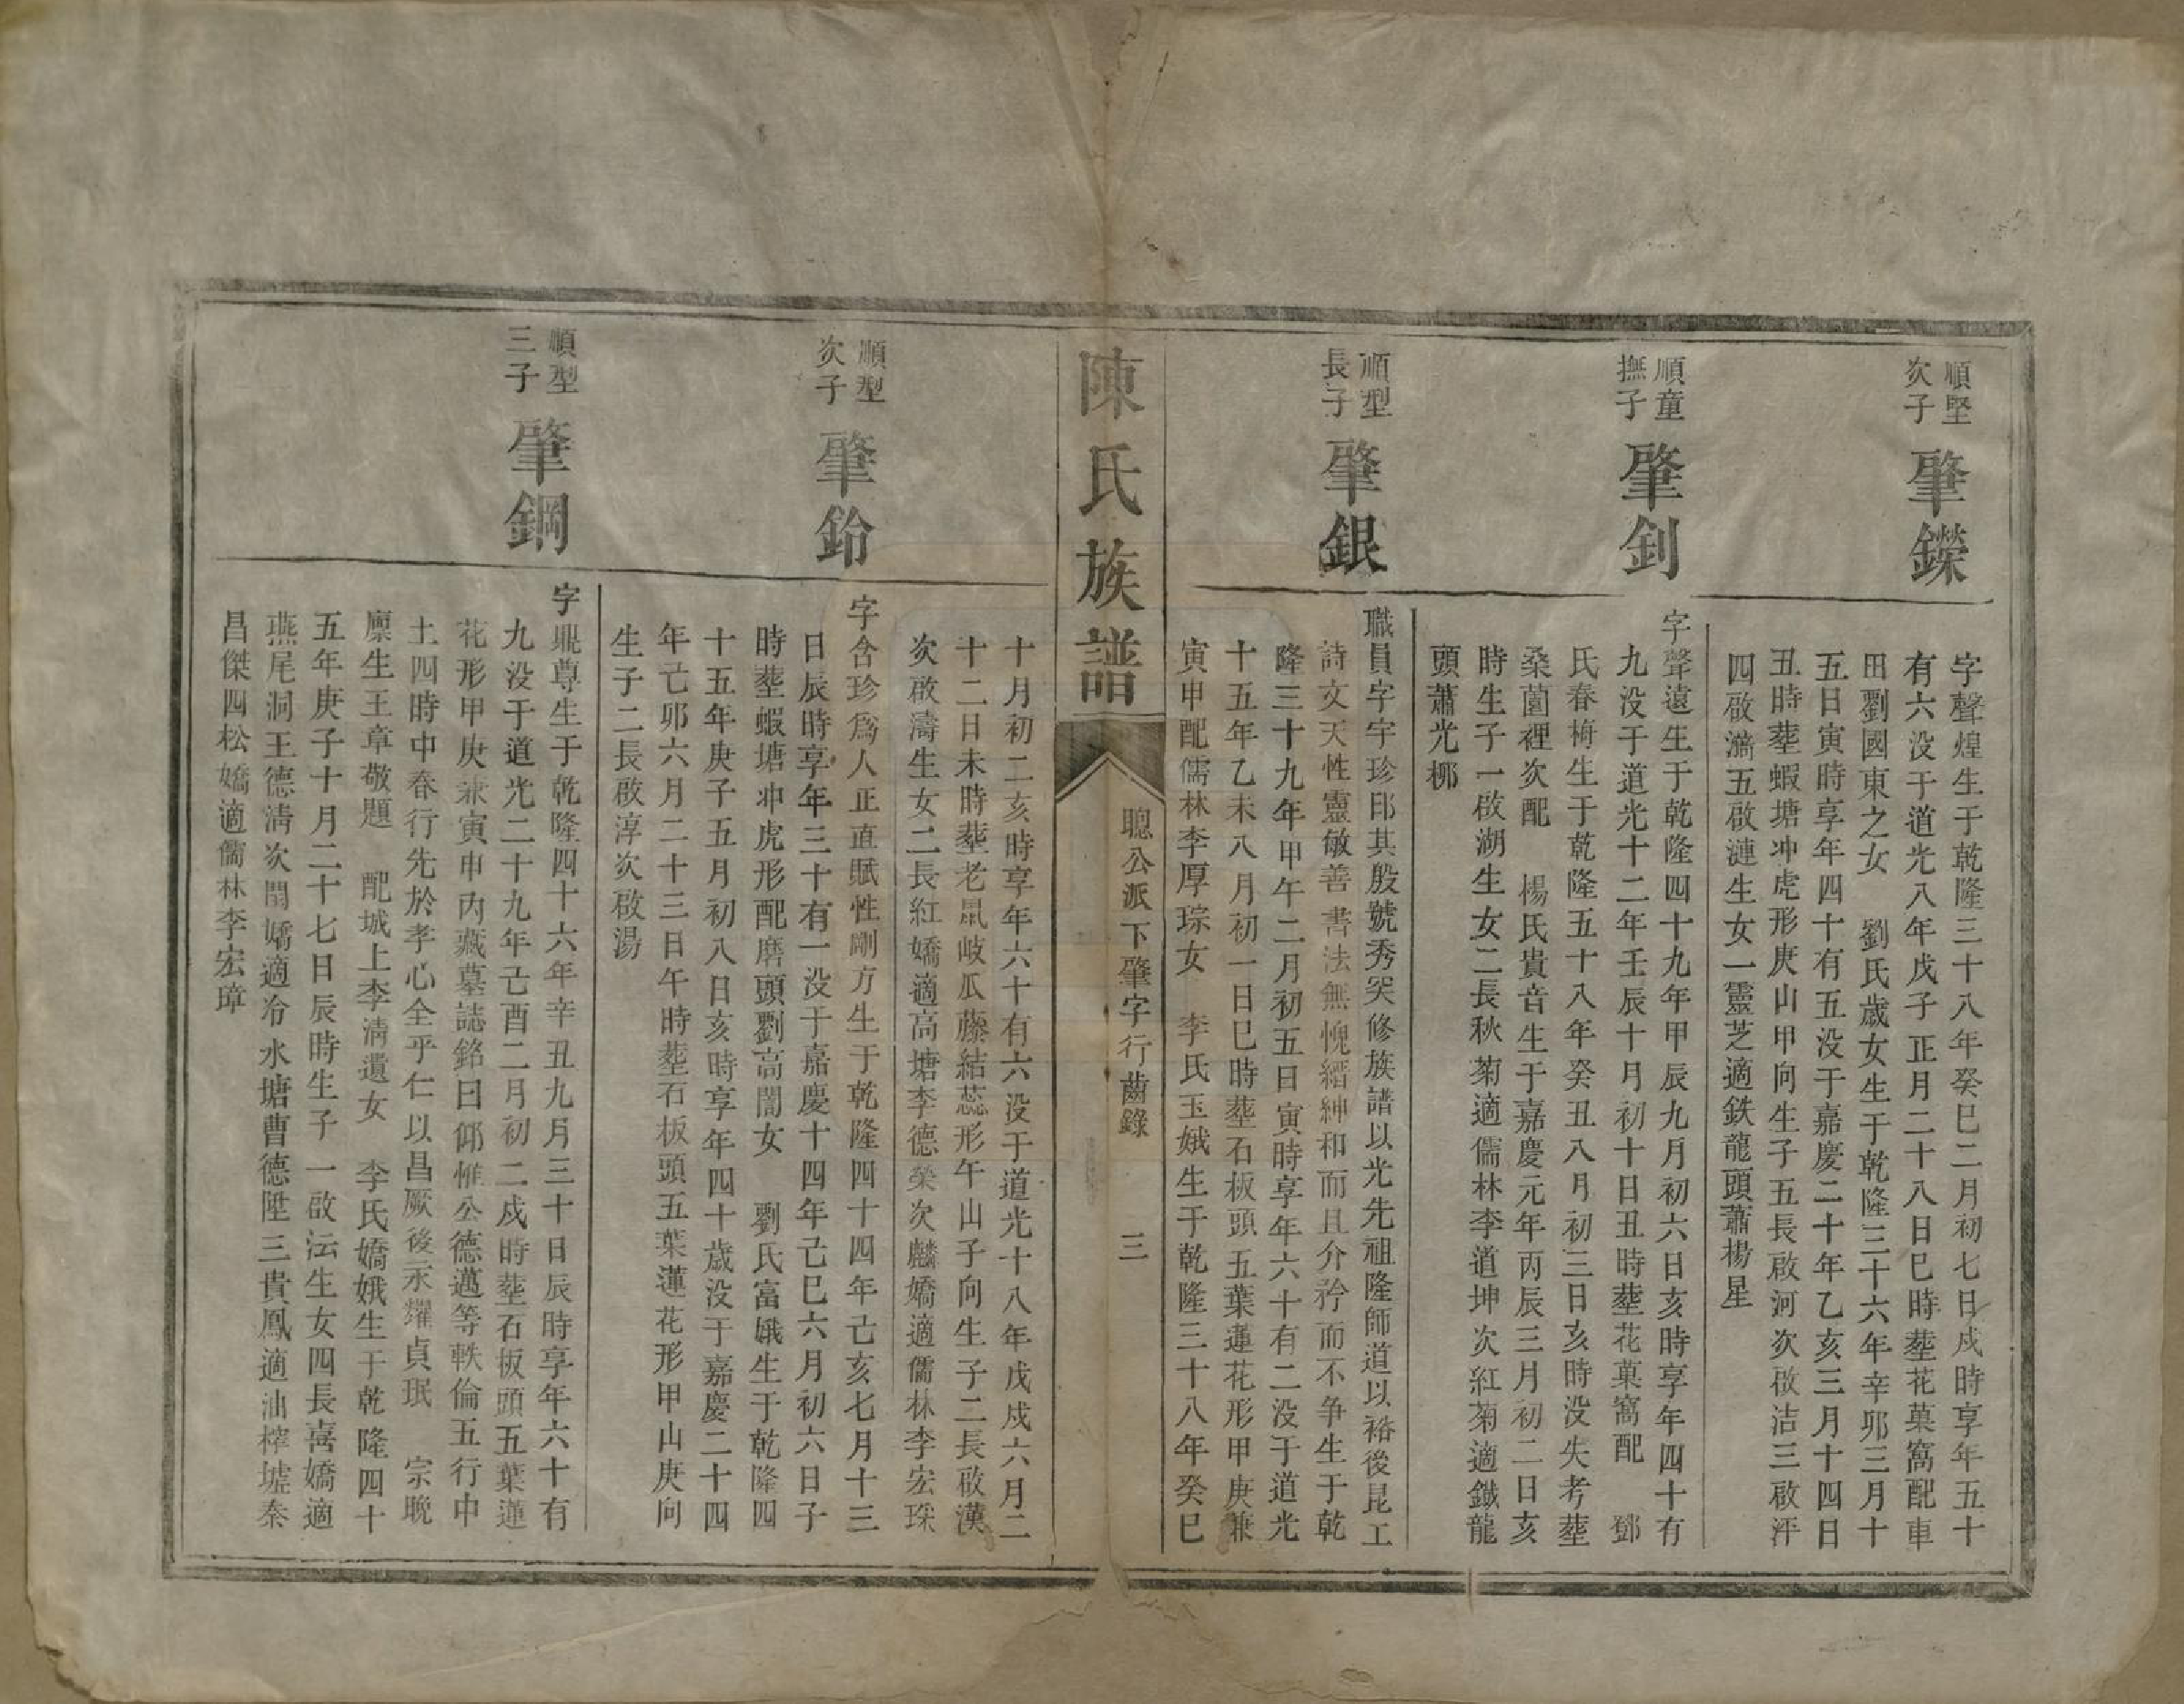 順堅
次子
肇鑅
字聲煌生于乾隆三十八年癸巳二月初七日戍時享年五十
有六没于道光八年戊子正月二十八日巳時塟花菓窩配車
田劉國東之女 劉氏歲女生于乾隆三十六年辛卯三月十
五日寅時享年四十有五没于嘉慶二十年乙亥三月十四日
丑時塟蝦塘冲虎形庚山甲向生子五長啟河次啟洁三啟泙
四啟㵼五啟漣生女一靈芝適鉄龍頭蕭楊星
順童
撫子
肇釗
字聲遠生于乾隆四十九年甲辰九月初六日亥時享年四十有
九没于道光十二年壬辰十月初十日丑時塟花菓窩配 鄧
氏春梅生于乾隆五十八年癸丑八月初三日亥時没失考塟
桑薗裡次配 楊氏貴音生于嘉慶元年丙辰三月初二日亥
時生子一啟湖生女二長秋菊適儒林李道坤次紅菊適鐵龍
頭蕭光梛
順型
長子
肇銀
職員字宇珍邵其殷號秀突修族譜以光先祖隆師道以裕後昆工
詩文天性靈敏善書法無愧縉紳和而且介矜而不争生于乾
隆三十九年甲午二月初五日寅時享年六十有二没于道光
十五年乙未八月初一日巳時塟石板頭五葉蓮花形甲庚兼
寅申配儒林李厚琮女 李氏玉娥生于乾隆三十八年癸巳
陳氏族譜
聰公派下肇字行齒錄
三
十月初二亥時享年六十有六没于道光十八年戊戍六月二
十二日未時塟老鼠岐瓜藤結蕊形午山子向生子二長啟漢
次啟濤生女二長紅嬌適高塘李德榮次麟嬌適儒林李宏琛
順型
次子
肇鈶
字含珍爲人正直賦性剛方生于乾隆四十四年己亥七月十三
日辰時享年三十有一没于嘉慶十四年己巳六月初六日子
時塟蝦塘冲虎形配磨頭劉高闇女 劉氏富娥生于乾隆四
十五年庚子五月初八日亥時享年四十歲没于嘉慶二十四
年己卯六月二十三日午時塟石板頭五葉蓮花形甲山庚向
生子二長啟淳次啟湯
順型
三子
肇鋼
字鼎尊生于乾隆四十六年辛丑九月三十日辰時享年六十有
九没于道光二十九年己酉二月初二戍時塟石板頭五葉蓮
花形甲庚兼寅申内藏墓誌銘曰卹惟公德邁等軼倫五行中
土四時中春行先於孝心全乎仁以昌厥後永耀貞珉 宗晚
廩生王章敬題 配城上李淸遺女 李氏嬌娥生于乾隆四十
五年庚子十月二十七日辰時生子一啟沄生女四長喜嬌適
燕尾洞王德淸次閏嬌適冷水塘曹德陞三貴鳳適油榨墟秦
昌傑四松嬌適儒林李宏璋